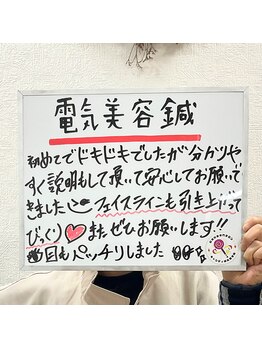 電気美容鍼
初めてでドキドキでしたが分かりや
すく説明もして頂いて安心してお願いで
きました
フェイスラインも引き上がって
びっくり♥またぜひお願いします!!
目もパッチリしました